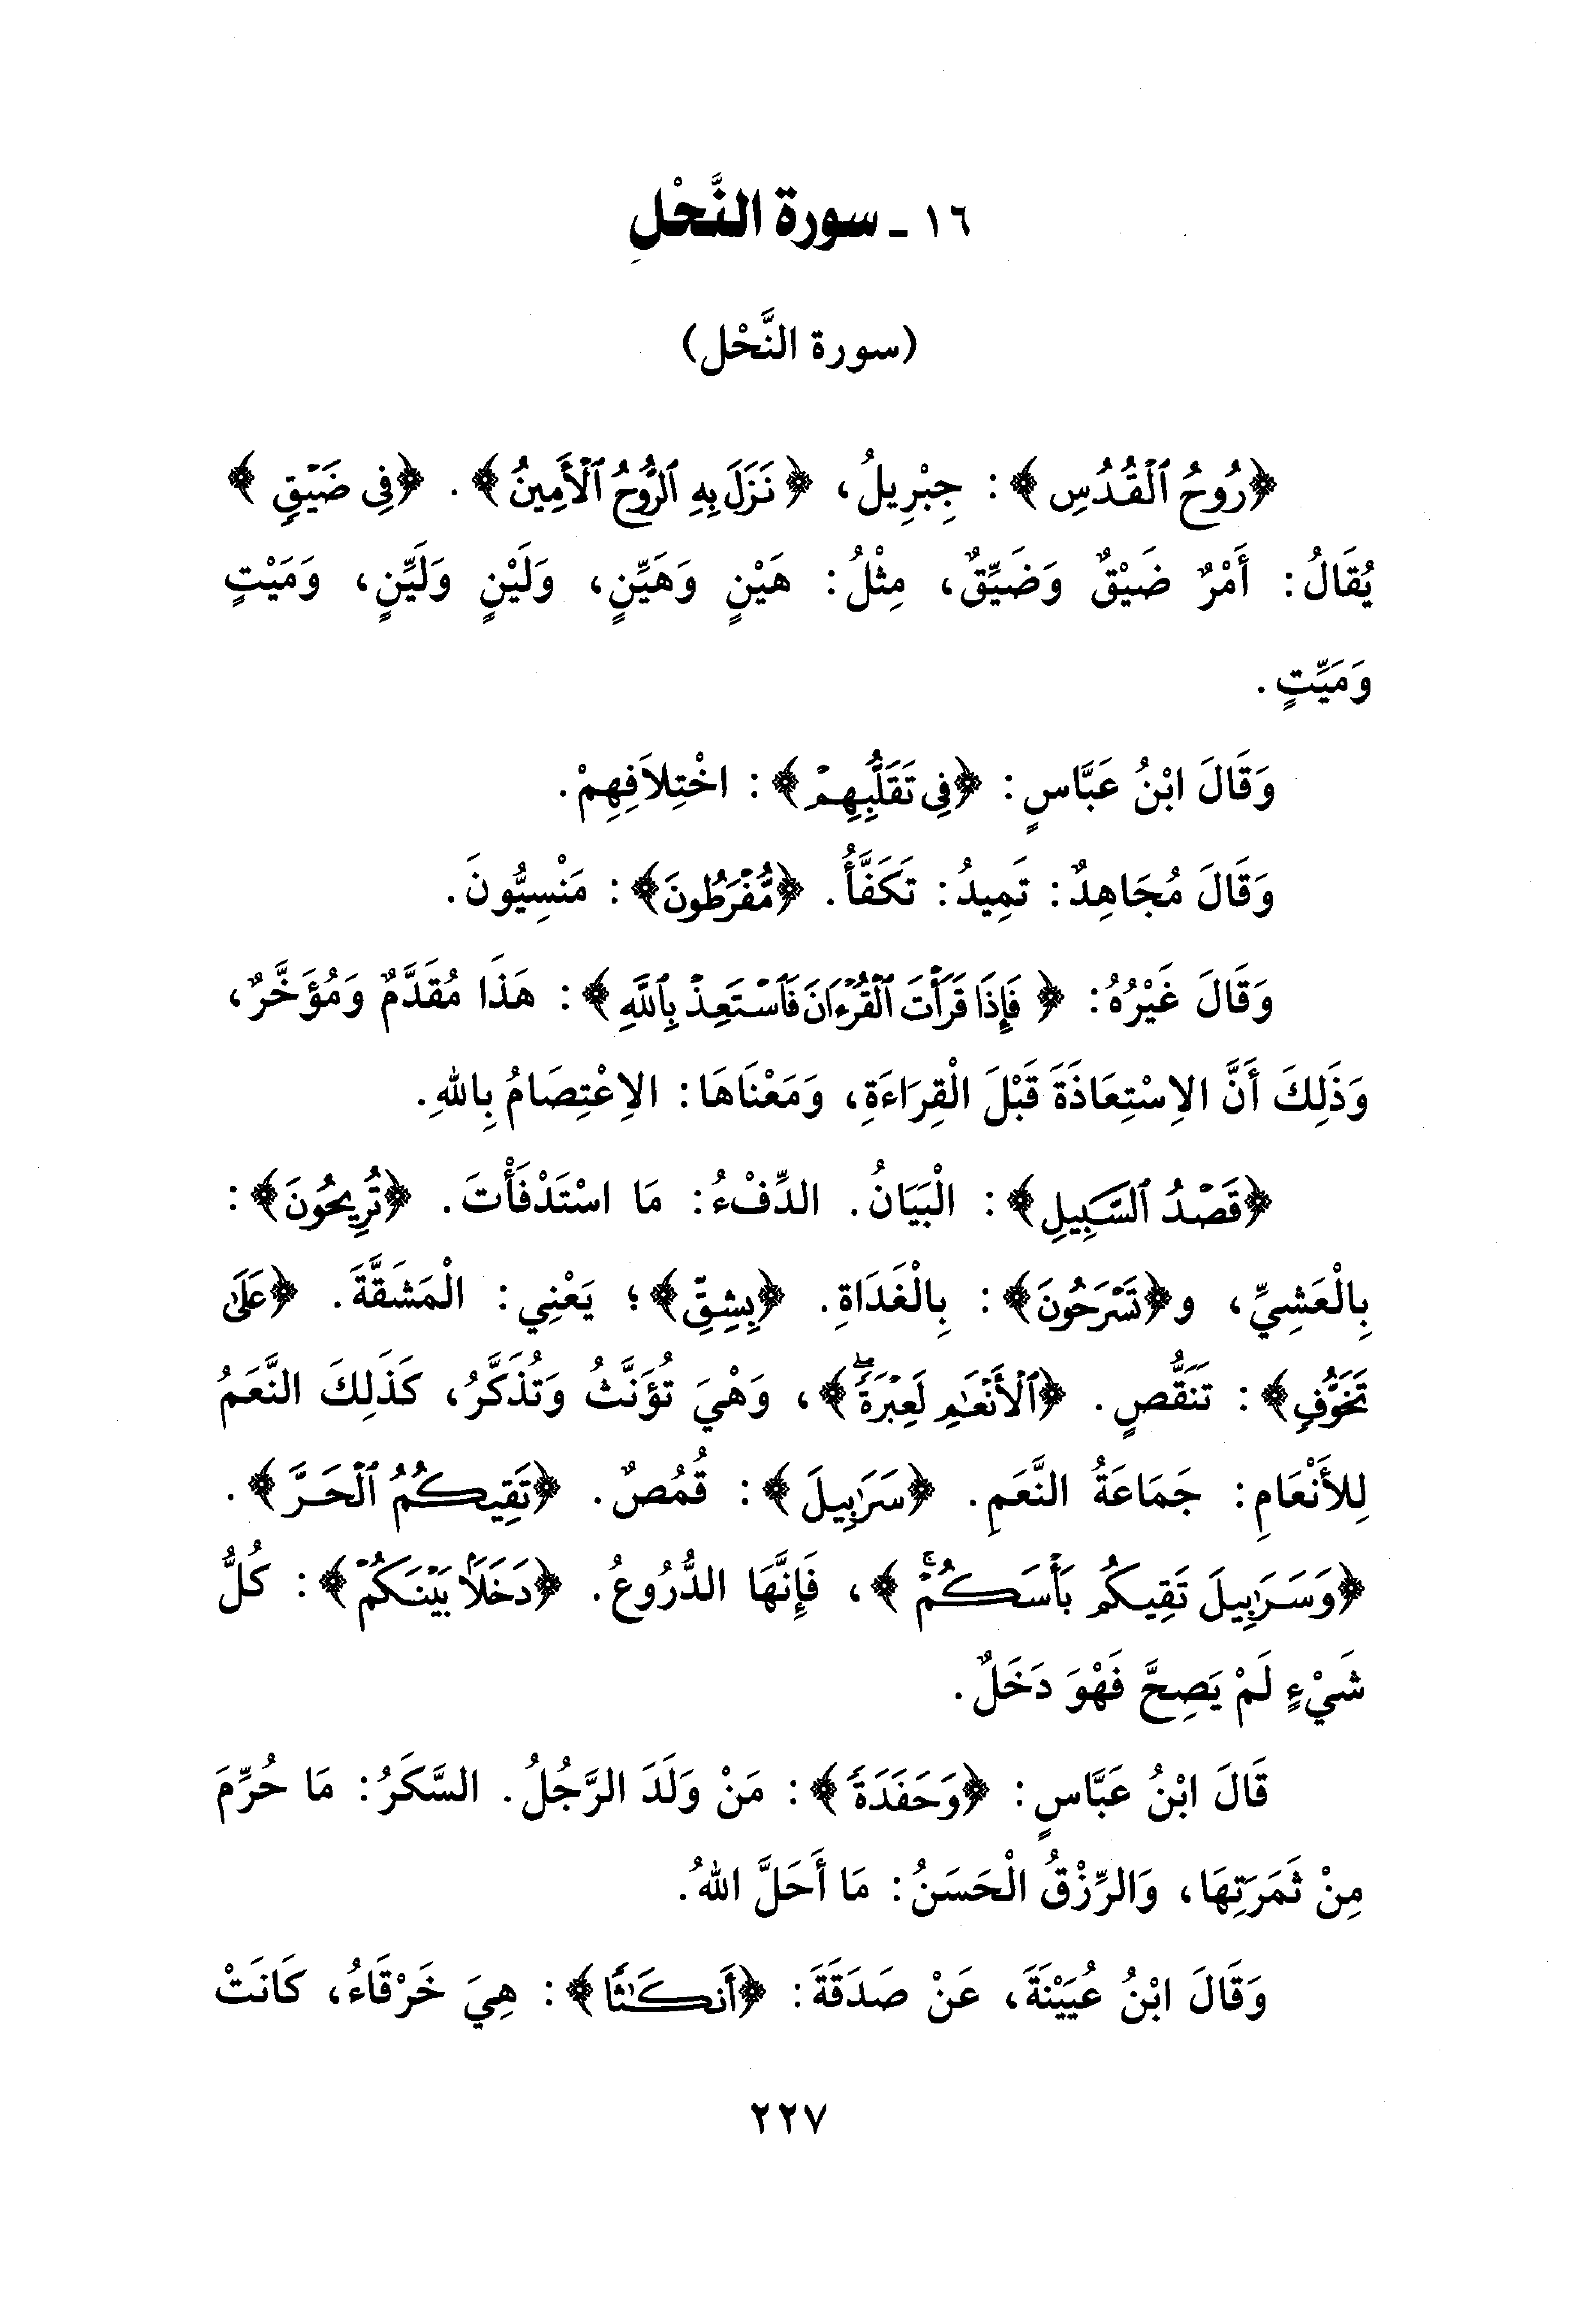 ١٦ ـ سورة النَّحْلِ
(سورة النَّحْل)
﴿رُوحُ ٱلْقُدُسِ﴾: جِبْرِيلُ، ﴿نَزَلَ بِهِ ٱلرُّوحُ ٱلْأَمِينُ﴾. ﴿فِى ضَيْقٍ﴾
يُقَالُ: أَمْرٌ ضَيْقٌ وَضَيِّقٌ، مِثْلُ: هَيْنٍ وَهَيِّنٍ، وَلَيْنٍ وَلَيِّنٍ، وَمَيْتٍ
وَمَيِّتٍ.
وَقَالَ ابْنُ عَبَّاسٍ: ﴿فِى تَقَلُّبِهِمْ﴾: اخْتِلاَفِهِمْ.
وَقَالَ مُجَاهِدٌ: تَمِيدُ: تَكَفَّأُ. ﴿مُّفْرَطُونَ﴾: مَنْسِيُّونَ.
وَقَالَ غَيْرُهُ: ﴿فَإِذَا قَرَأْتَ ٱلْقُرْءَانَ فَٱسْتَعِذْ بِٱللَّهِ﴾: هَذَا مُقَدَّمٌ وَمُؤَخَّرٌ،
وَذَلِكَ أَنَّ الاِسْتِعَاذَةَ قَبْلَ الْقِرَاءَةِ، وَمَعْنَاهَا: الاِعْتِصَامُ بِاللهِ.
﴿قَصْدُ ٱلسَّبِيلِ﴾: الْبَيَانُ. الدِّفْءُ: مَا اسْتَدْفَأْتَ. ﴿تُرِيحُونَ﴾:
بِالْعَشِيِّ، و﴿تَسْرَحُونَ﴾: بِالْغَدَاةِ. ﴿بِشِقِّ﴾؛ يَعْنِي: الْمَشَقَّةَ. ﴿عَلَىٰ
تَخَوُّفٍ﴾: تَنَقُّصٍ. ﴿ٱلْأَنْعَٰمِ لَعِبْرَةً ۖ﴾، وَهْيَ تُؤَنَّثُ وَتُذَكَّرُ، كَذَلِكَ النَّعَمُ
لِلأَنْعَامِ: جَمَاعَةُ النَّعَمِ. ﴿سَرَٰبِيلَ﴾: قُمُصٌ. ﴿تَقِيكُمُ ٱلْحَرَّ﴾.
﴿وَسَرَٰبِيلَ تَقِيكُم بَأْسَكُمْ ۚ﴾، فَإِنَّهَا الدُّرُوعُ. ﴿دَخَلًۢا بَيْنَكُمْ﴾: كُلُّ
شَيْءٍ لَمْ يَصِحَّ فَهْوَ دَخَلٌ.
قَالَ ابْنُ عَبَّاسٍ: ﴿وَحَفَدَةً﴾: مَنْ وَلَدَ الرَّجُلُ. السَّكَرُ: مَا حُرِّمَ
مِنْ ثَمَرَتِهَا، وَالرِّزْقُ الْحَسَنُ: مَا أَحَلَّ اللهُ.
وَقَالَ ابْنُ عُيَيْنَةَ، عَنْ صَدَقَةَ: ﴿أَنكَٰثًا﴾: هِيَ خَرْقَاءُ، كَانَتْ
٢٢٧